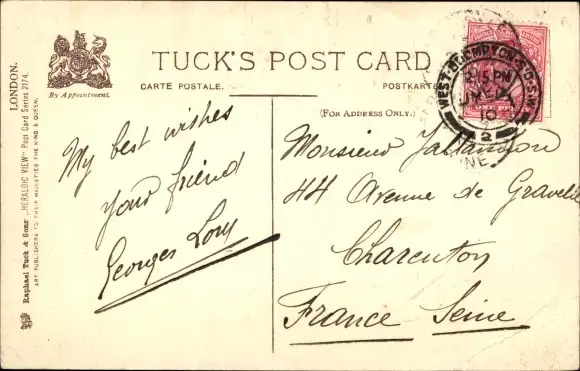 TUCK'S POST CARD
CARTE POSTALE.
POSTKARTE
By Appointment.
(FOR ADDRESS ONLY.)
LONDON.
Raphael Tuck & Sons' "HERALDIC VIEW" Post Card Series 2174.
ART PUBLISHERS TO THEIR MAJESTIES THE KING & QUEEN.
My best wishes
your friend
Georges
Monsieur
44 Avenue de
Charenton
France Seine
WEST·BROMPTON·S.O·S.W
PM
10
2